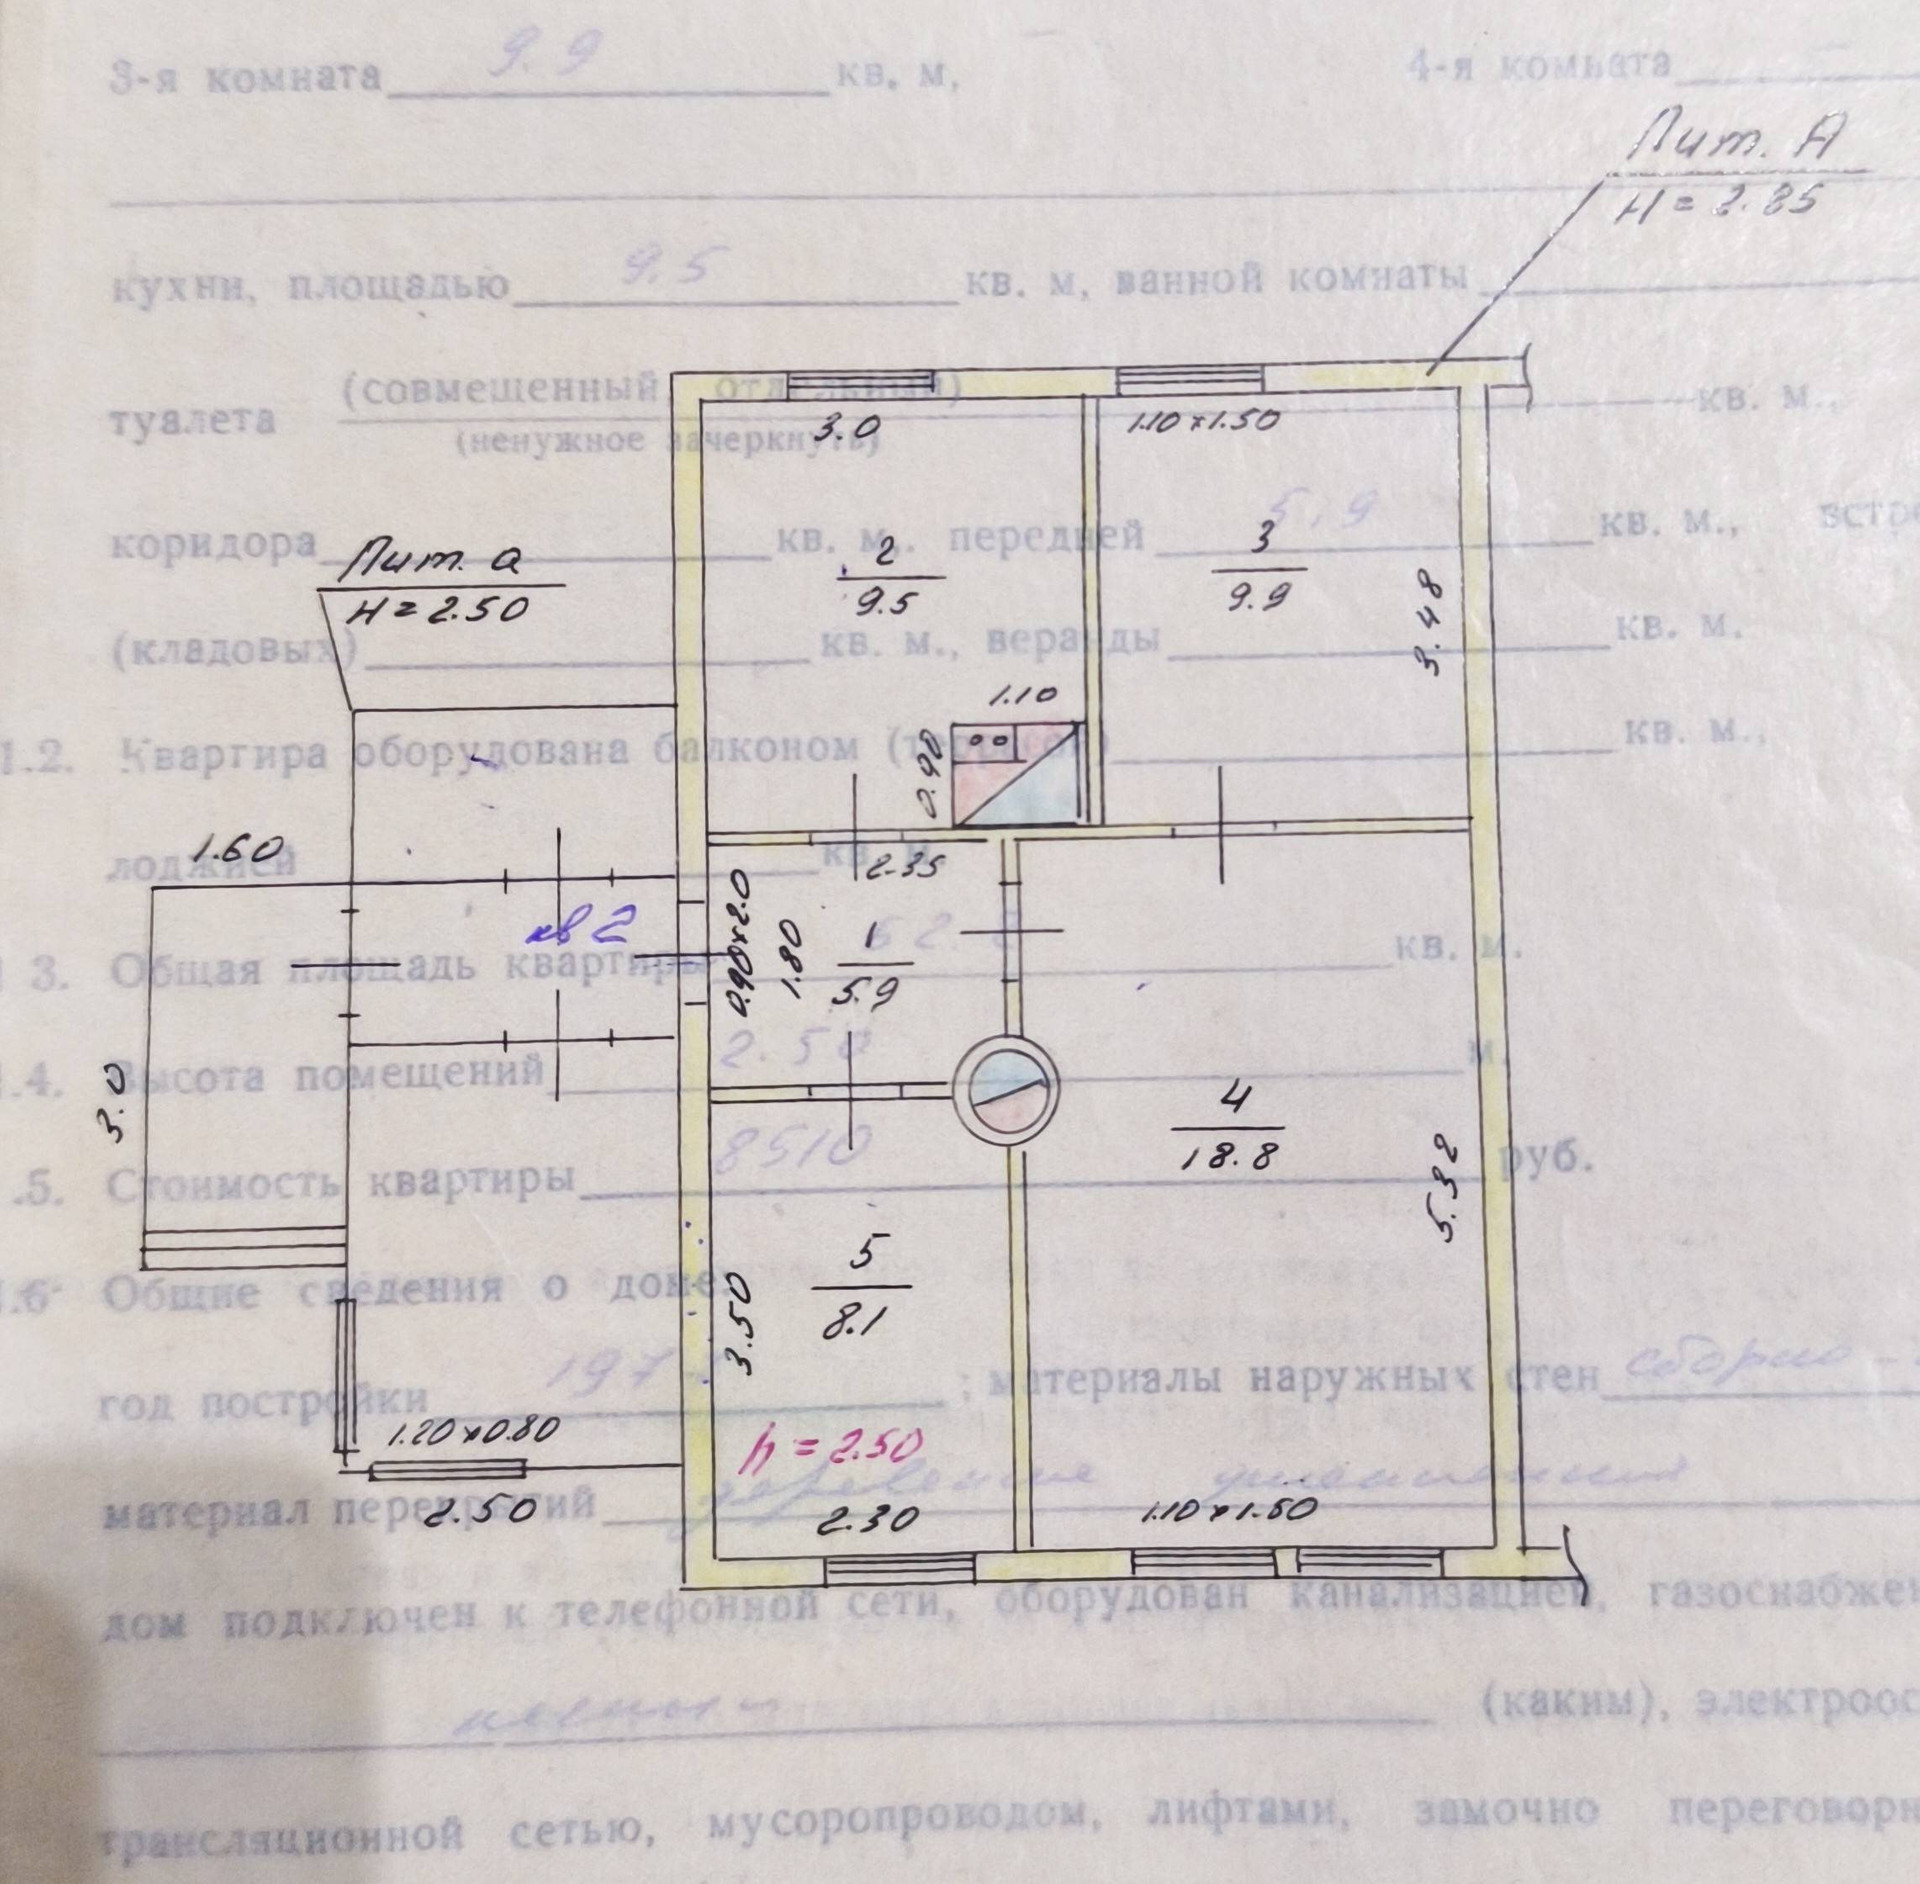 3-я комната 9.9 кв. м, 4-я комната
Лит. А
Н = 2.85
кухни, площадью 9.5 кв. м, ванной комнаты
туалета (совмещенный, отдельный) кв. м.,
(ненужное зачеркнуть)
3.0 1.10 х 1.50
коридора кв. м., передней 5.9 кв. м.,
Лит. а
Н = 2.50
2
9.5
3
9.9
3.48
(кладовых) кв. м., веранды кв. м.
1.10
0.90
1.2. Квартира оборудована балконом кв. м.,
1.60
лоджией кв. м.
2.35
0.90х2.0
1.80
1
5.9
кв 2
3. Общая площадь квартиры кв. м.
3.0
.4. Высота помещений 2.50 м.
4
18.8
5.32
.5. Стоимость квартиры 8510 руб.
5
8.1
3.50
.6 Общие сведения о доме:
год постройки 197 ; материалы наружных стен сборно -
1.20 х 0.80
2.50
h = 2.50
2.30
1.10 х 1.50
материал перекрытий
дом подключен к телефонной сети, оборудован канализацией,
(каким),
трансляционной сетью, мусоропроводом, лифтами, замочно